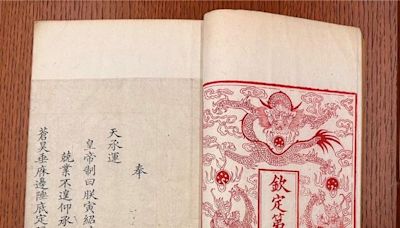 欽定第
奉
天承運
皇帝制曰朕寅紹
兢業不遑仰承
蒼昊垂庥邊陲底定